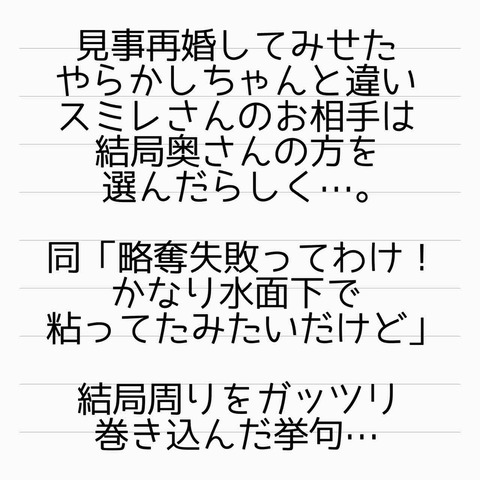 見事再婚してみせた
やらかしちゃんと違い
スミレさんのお相手は
結局奥さんの方を
選んだらしく…。
同「略奪失敗ってわけ！
かなり水面下で
粘ってたみたいだけど」
結局周りをガッツリ
巻き込んだ挙句…